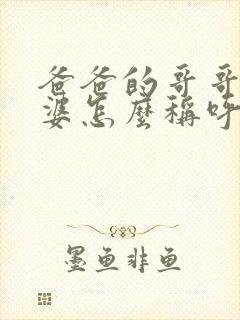 爸爸的哥哥
婆怎麼稱呼
墨魚非魚